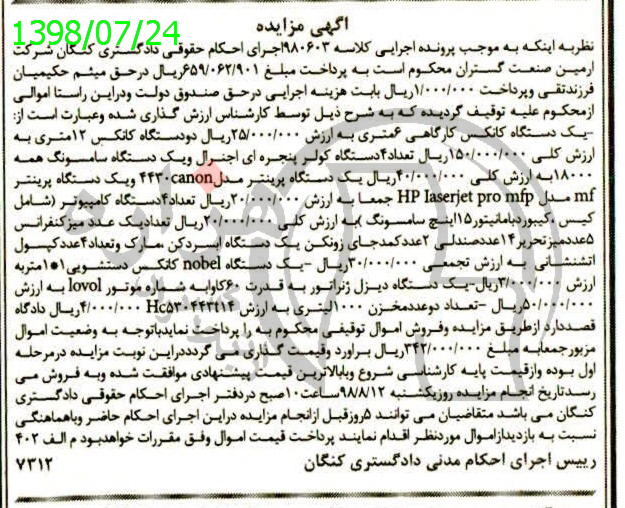 آگهی مزایده
1398/07/24
نظربه اینکه به موجب پرونده اجرایی کلاسه ۹۸۰۶۰۳اجرای احکام حقوقی دادگستری کنگان شرکت
ارمین صنعت گستران محکوم است به پرداخت مبلغ ۶۵۹/۰۶۲/۹۰۱ریال درحق میثم حکیمیان
فرزندتقی وپرداخت ۱/۰۰۰/۰۰۰ریال بابت هزینه اجرایی درحق صندوق دولت ودراین راستا اموالی
ازمحکوم علیه توقیف گردیده که به شرح ذیل توسط کارشناس ارزش گذاری شده وعبارت است از:
-یک دستگاه کانکس کارگاهی ۶متری به ارزش ۲۵/۰۰۰/۰۰۰ریال دودستگاه کانکس ۱۲متری به
ارزش کلی ۱۵۰/۰۰۰/۰۰۰ریال تعداد۴دستگاه کولر پنجره ای اجنرال ویک دستگاه سامسونگ همه
۱۸۰۰۰به ارزش کلی ۴۰/۰۰۰/۰۰۰ریال یک دستگاه پرینتر مدل۴۴۳۰canon ویک دستگاه پرینتر
mf مدل HP laserjet pro mfp جمعا به ارزش ۲۰/۰۰۰/۰۰۰ریال تعداد۴دستگاه کامپیوتر (شامل
کیس ،کیبوردبامانیتور۱۵اینچ سامسونگ )به ارزش کلی ۲۰/۰۰۰/۰۰۰ریال تعدادیک عدد میزکنفرانس
۵عددمیزتحریر۱۴عددصندلی ۲عددکمدجای زونکن یک دستگاه ابسردکن ،مارک وتعداد۴عددکپسول
اتشنشانی به ارزش تجمعی ۳۰/۰۰۰/۰۰۰ریال -یک دستگاه nobel کانکس دستشویی۱*۱متربه
ارزش ۳/۰۰۰/۰۰۰ریال-یک دستگاه دیزل ژنراتور به قدرت ۶۰کاوابه شماره موتور lovol به ارزش
۵۰/۰۰۰/۰۰۰ریال -تعداد دوعددمخزن ۱۰۰۰لیتری به ارزش Hc۵۳۰۴۴۳t۱۴ ۴/۰۰۰/۰۰۰ریال دادگاه
قصددارد ازطریق مزایده وفروش اموال توقیفی محکوم به را پرداخت نمایدباتوجه به وضعیت اموال
مزبورجمعابه مبلغ ۳۴۲/۰۰۰/۰۰۰ریال براورد وقیمت گذاری می گردددراین نوبت مزایده درمرحله
اول بوده وازقیمت پایه کارشناسی شروع وبابالاترین قیمت پیشنهادی موافقت شده وبه فروش می
رسدتاریخ انجام مزایده روزیکشنبه ۹۸/۸/۱۲ساعت۱۰صبح دردفتر اجرای احکام حقوقی دادگستری
کنگان می باشد متقاضیان می توانند ۵روزقبل ازانجام مزایده دراین اجرای احکام حاضر وباهماهنگی
نسبت به بازدیدازاموال موردنظر اقدام نمایند پرداخت قیمت اموال وفق مقررات خواهدبود م الف ۴۰۲
رییس اجرای احکام مدنی دادگستری کنگان
۷۳۱۲